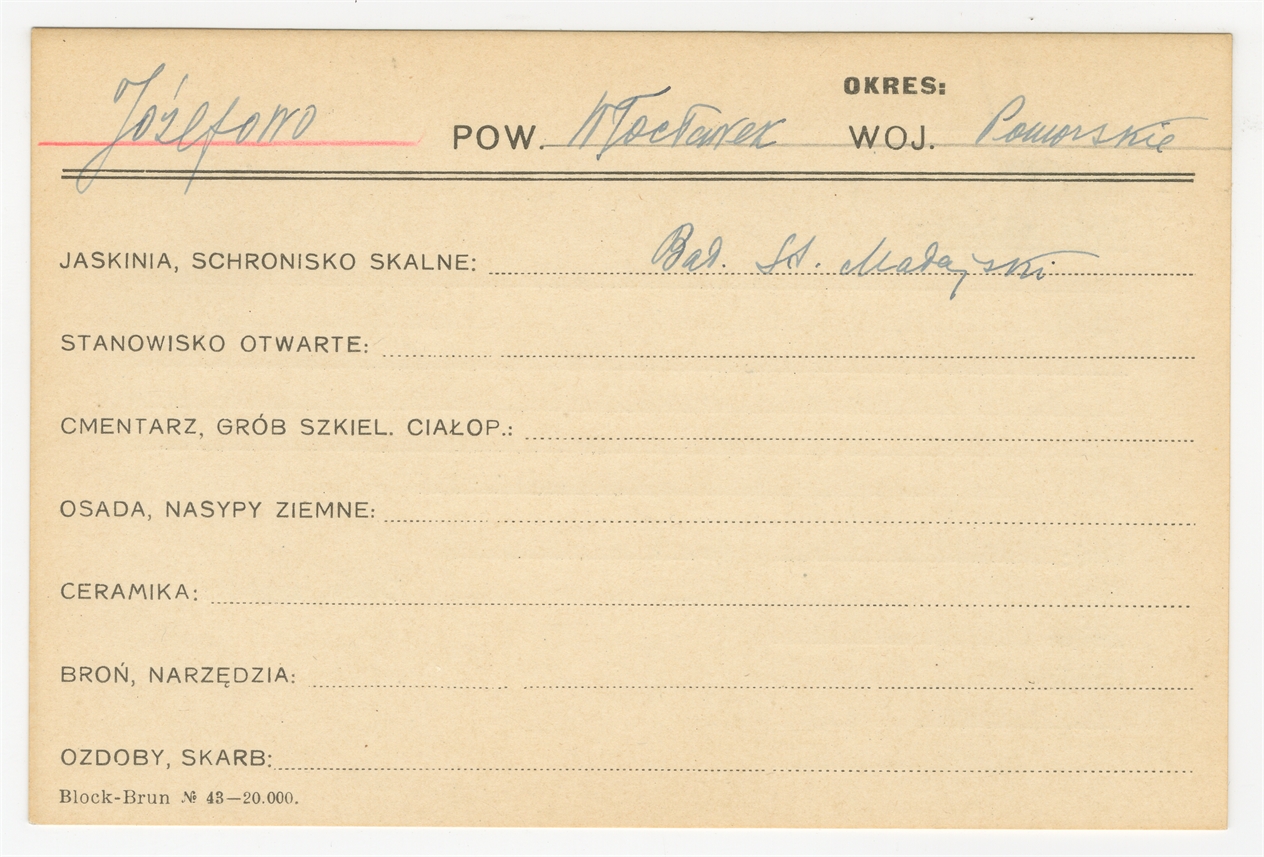 OKRES:
Józefowo POW. Włocławek WOJ. Pomorskie
JASKINIA, SCHRONISKO SKALNE: Bad. St. Madajski
STANOWISKO OTWARTE:
CMENTARZ, GRÓB SZKIEL. CIAŁOP.:
OSADA, NASYPY ZIEMNE:
CERAMIKA:
BROŃ, NARZĘDZIA:
OZDOBY, SKARB:
Block-Brun № 43—20.000.